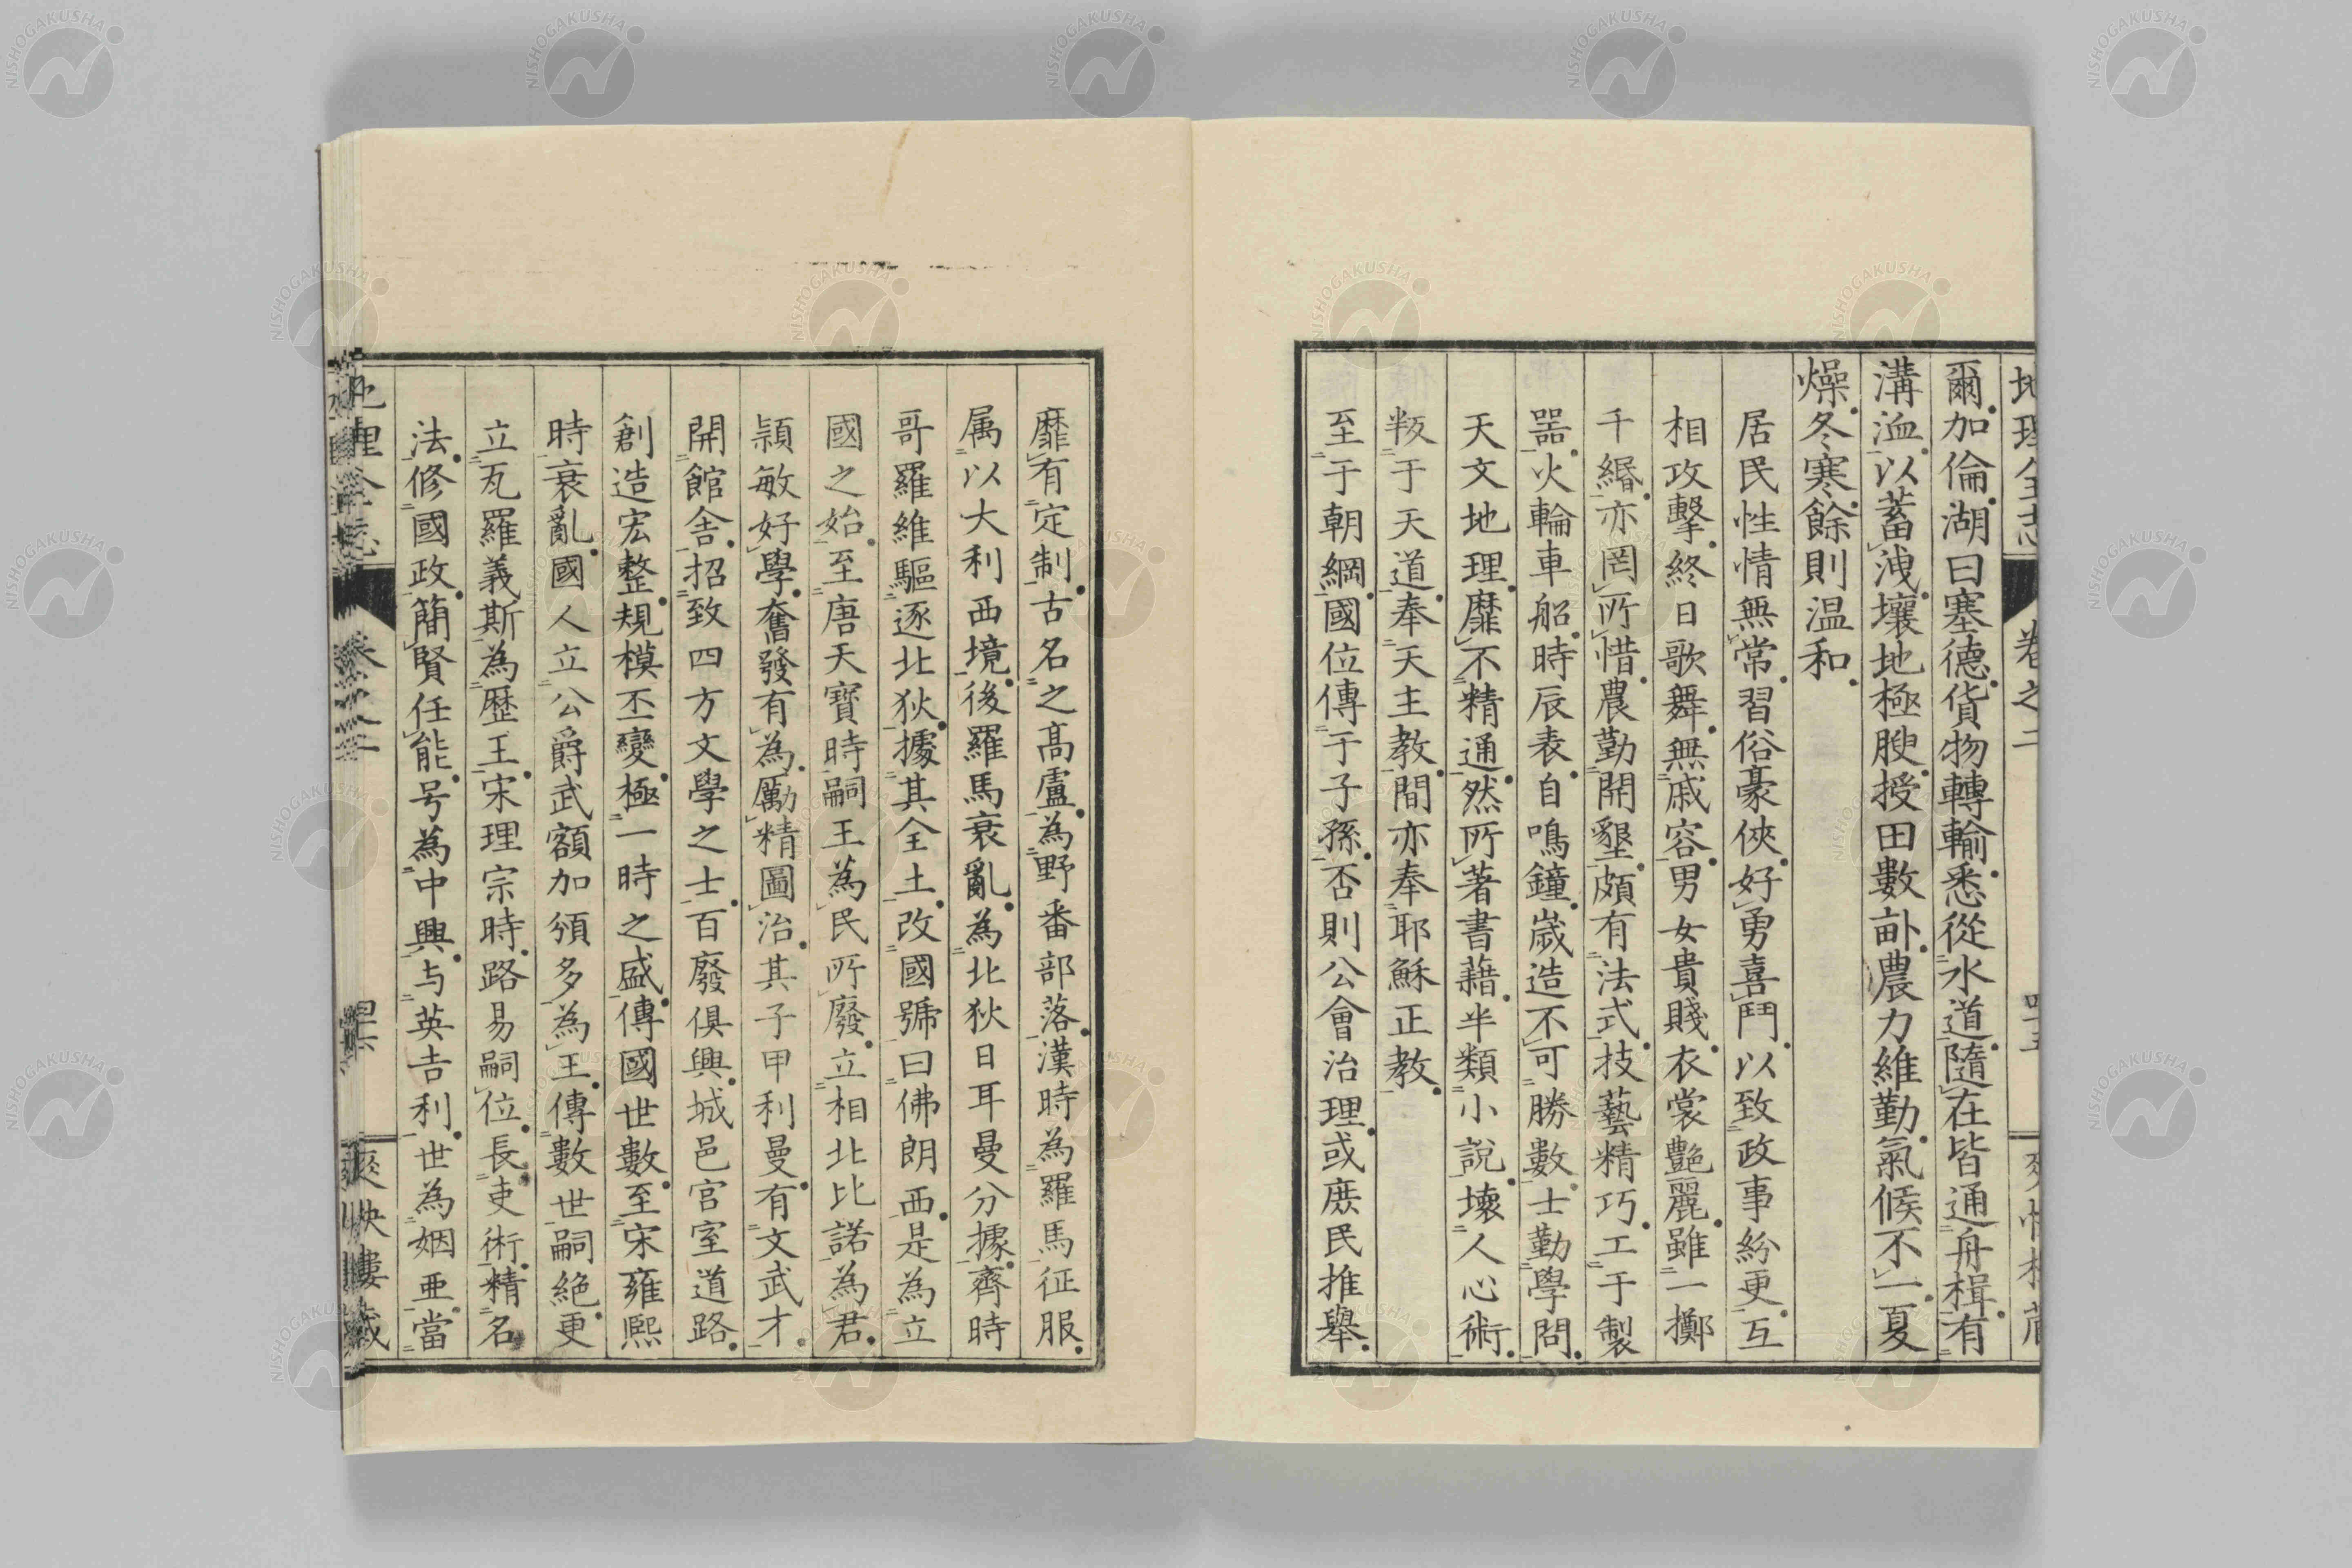 地理全志 卷之二 爽快樓藏
爾加倫湖曰塞德貨物轉輸悉從水道隨在皆通舟楫有
溝洫以蓄洩壤地極腴授田數畝農力維勤氣候不一夏
燥冬寒餘則温和
居民性情無常習俗豪俠好勇喜鬥以致政事紛更互
相攻擊終日歌舞無戚容男女貴賤衣裳艷麗雖一擲
千緡亦罔所惜農勤開墾頗有法式技藝精巧工于製
器火輪車船時辰表自鳴鐘嵗造不可勝數士勤學問
天文地理靡不精通然所著書籍半類小說壞人心術
叛于天道奉天主教間亦奉耶穌正教
至于朝綱國位傳于子孫否則公會治理或庶民推舉
靡有定制古名之髙盧為野番部落漢時為羅馬征服
属以大利西境後羅馬衰亂為北狄日耳曼分據齊時
哥羅維驅逐北狄據其全土改國號曰佛朗西是為立
國之始至唐天寶時嗣王為民所廢立相北比諾為君
頴敏好學奮發有為勵精圖治其子甲利曼有文武才
開館舎招致四方文學之士百廢俱興城邑宫室道路
創造宏整規模丕變極一時之盛傳國世數至宋雍熙
時衰亂國人立公爵武額加頒多為王傳數世嗣絶更
立瓦羅義斯為歷王宋理宗時路易嗣位長吏術精名
法修國政簡賢任能号為中興与英吉利世為姻亜當
地理全志 卷之二 爽快樓藏
NISHOGAKUSHA